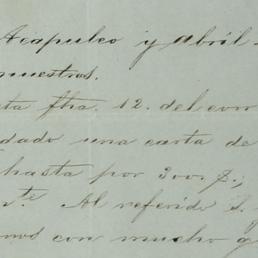 Acapulco y abril
muestras.
ta fha. 12. del corr
dado una carta de
hasta por 200. $.;
te Al referido S.
mos con mucho g